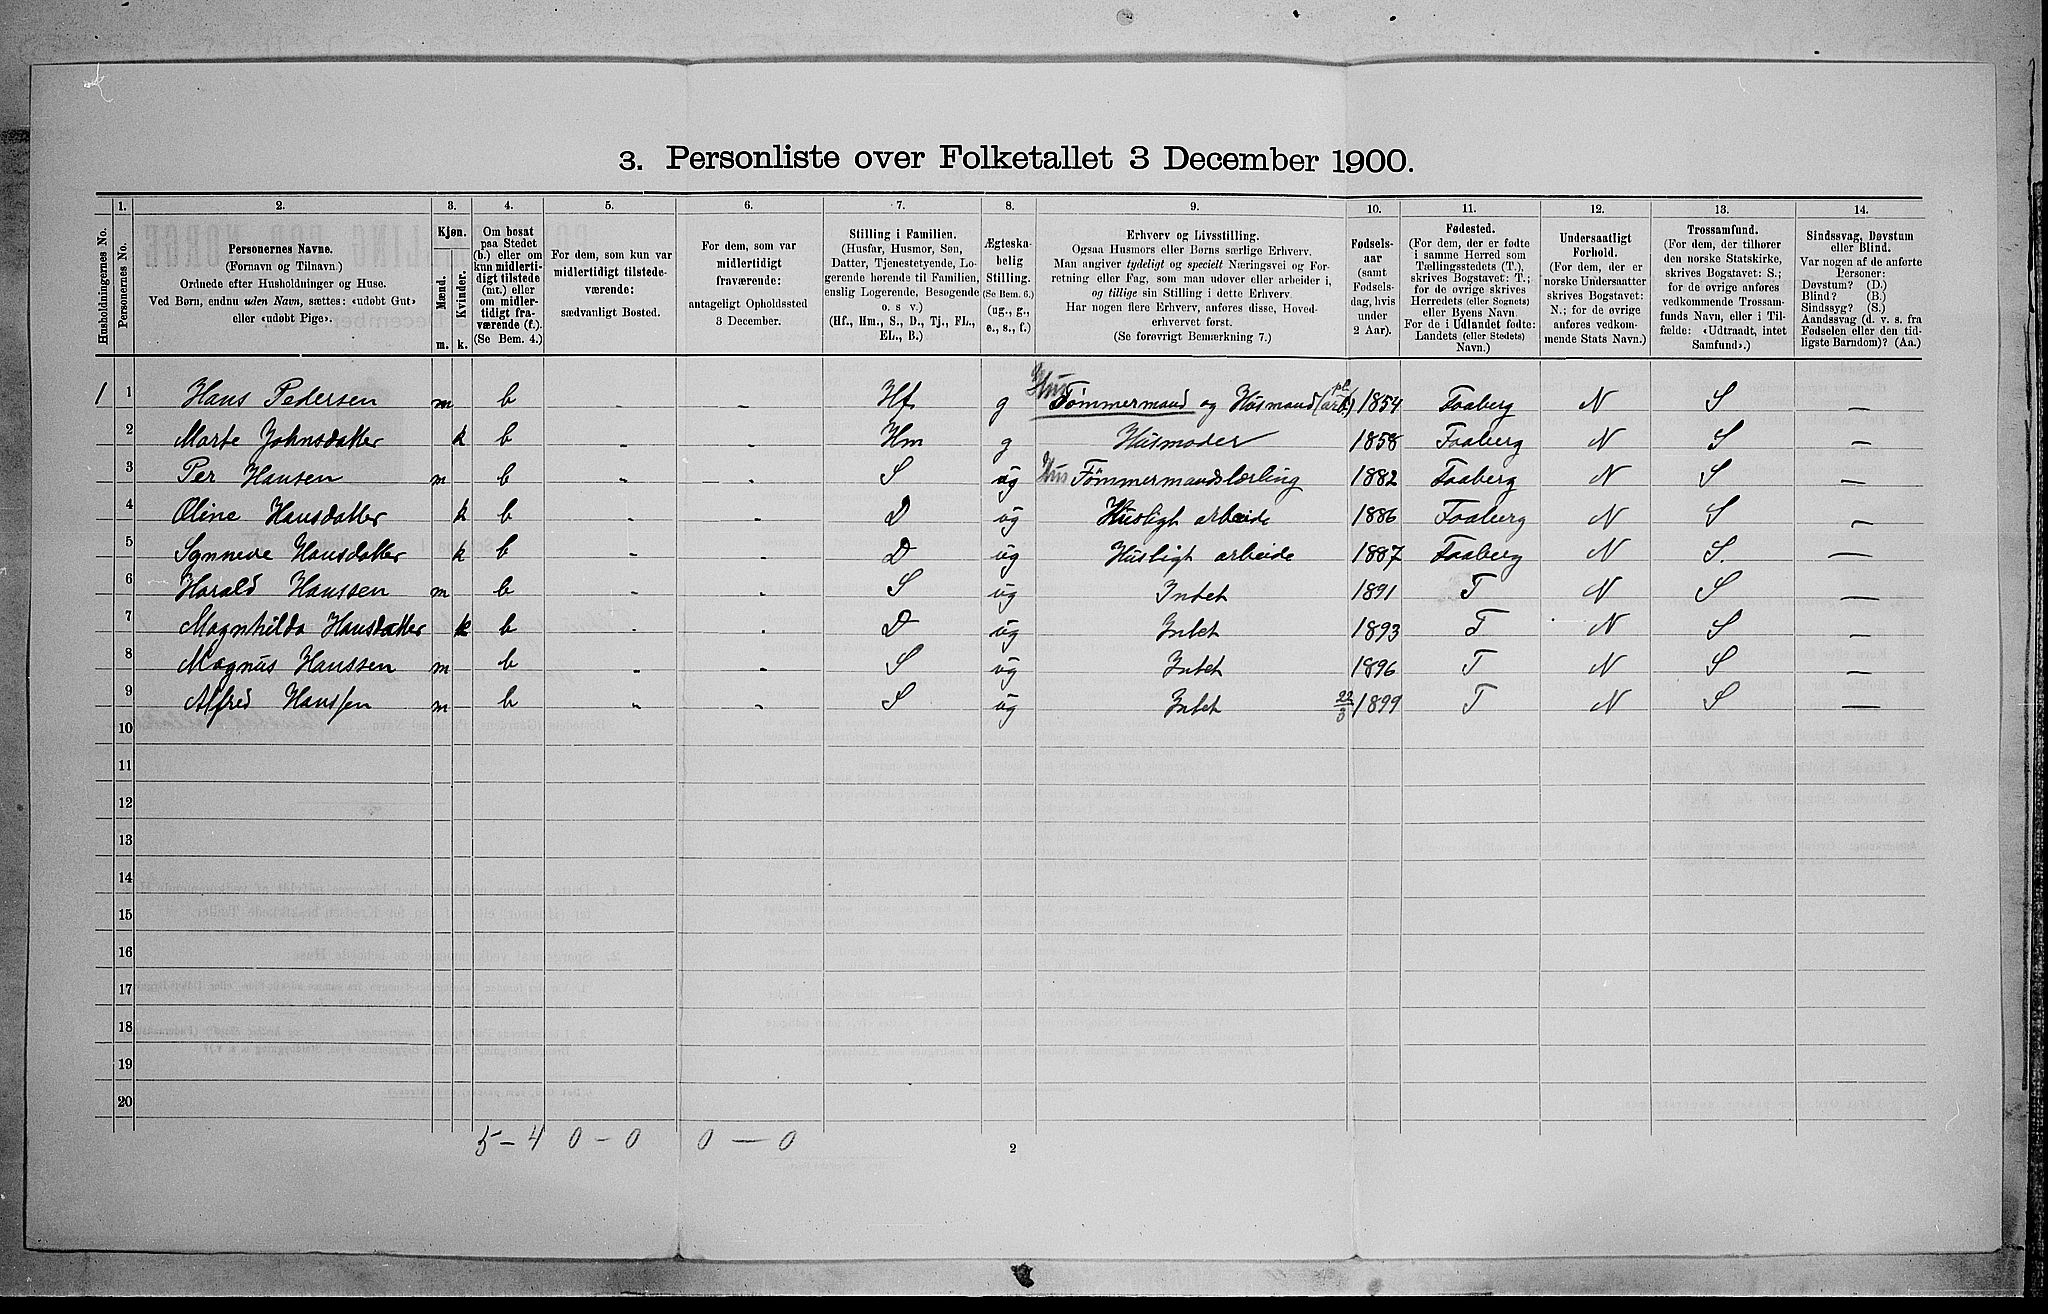 3. Personliste over Folketallet 3 December 1900.
1. 2. 3. 4. 5. 6. 7. 8. 9. 10. 11. 12. 13. 14.
Husholdningernes No.
Personernes No.
Personernes Navne.
(Fornavn og Tilnavn.)
Ordnede efter Husholdninger og Huse.
Ved Børn, endnu uden Navn, sættes: «udøbt Gut»
eller «udøbt Pige».
Kjøn.
Mænd.
Kvinder.
m. k.
Om bosat
paa Stedet
(b.) eller om
kun midlerti-
digt tilstede
(mt.) eller
om midler-
tidigt fra-
værende (f.).
(Se Bem. 4.)
For dem, som kun var
midlertidigt tilstede-
værende:
sædvanligt Bosted.
For dem, som var
midlertidigt
fraværende:
antageligt Opholdssted
3 December.
Stilling i Familien.
(Husfar, Husmor, Søn,
Datter, Tjenestetyende, Lo-
gerende hørende til Familien,
enslig Logerende, Besøgende
o. s. v.)
(Hf., Hm., S., D., Tj., FL.,
EL., B.)
Ægteska-
belig
Stilling.
(Se Bem. 6.)
(ug., g.,
e., s., f.)
Erhverv og Livsstilling.
Ogsaa Husmors eller Børns særlige Erhverv.
Man angiver tydeligt og specielt Næringsvei og For-
retning eller Fag, som man udøver eller arbeider i,
og tillige sin Stilling i dette Erhverv.
Har nogen flere Erhverv, anføres disse, Hoved-
erhvervet først.
(Se forøvrigt Bemærkning 7.)
Fødsels-
aar
(samt
Fødsels-
dag, hvis
under
2 Aar).
Fødested.
(For dem, der er fødte
i samme Herred som
Tællingsstedets (T.),
skrives Bogstavet: T.;
for de øvrige skrives
Herredets (eller Sognets)
eller Byens Navn.
For de i Udlandet fødte:
Landets (eller Stedets)
Navn.)
Undersaatligt
Forhold.
(For dem, der er
norske Undersaatter
skrives Bogstavet:
N.; for de øvrige
anføres vedkom-
mende Stats Navn.)
Trossamfund.
(For dem, der tilhører
den norske Statskirke,
skrives Bogstavet: S.;
for de øvrige anføres
vedkommende Trossam-
funds Navn, eller i Til-
fælde: «Udtraadt, intet
Samfund».)
Sindssvag, Døvstum
eller Blind.
Var nogen af de anførte
Personer:
Døvstum? (D.)
Blind? (B.)
Sindssyg? (S.)
Aandssvag (d. v. s. fra
Fødselen eller den tid-
ligste Barndom)? (Aa.)
1 1 Hans Pedersen m b - Hf g Hus Tømmermand og Husmand (arb. pl.) 1854 Faaberg N S —
2 Marte Johnsdatter k b - - Hm g Husmoder 1858 Faaberg N S —
3 Per Hansen m b - - S ug Hus Tømmermandslærling 1882 Faaberg N S —
4 Oline Hansdatter k b - - D ug Husligt arbeide 1886 Faaberg N S —
5 Synneve Hansdatter k b - - D ug Husligt arbeide 1887 Faaberg N S. —
6 Harald Hanssen m b - - S ug Intet 1891 T N S —
7 Magnhilda Hansdatter k b - - D ug Intet 1893 T N S —
8 Magnus Hanssen m b - - S ug Intet 1896 T N S —
9 Alfred Hanssen m b - - S ug Intet 22/3 1899 T N S —
10
11
12
13
14
15
16
17
18
19
20
5 - 4 0 - 0 0 — 0
2